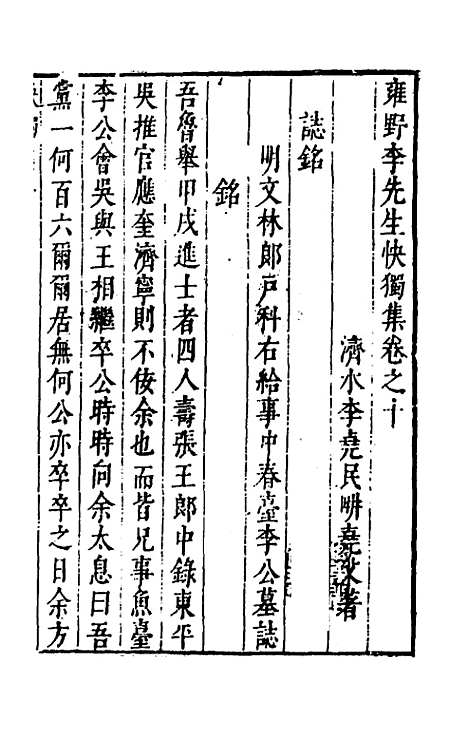 雍野李先生快獨集卷之十
濟水李堯民畊堯父著
誌銘
明文林郎戶科右給事中春臺李公墓誌
銘
吾魯舉甲戌進士者四人壽張王郎中錄東平
吳推官應奎濟寧則不佞余也而皆兄事魚臺
李公會吳與王相繼卒公時時向余太息曰吾
黨一何百六爾爾居無何公亦卒卒之日余方